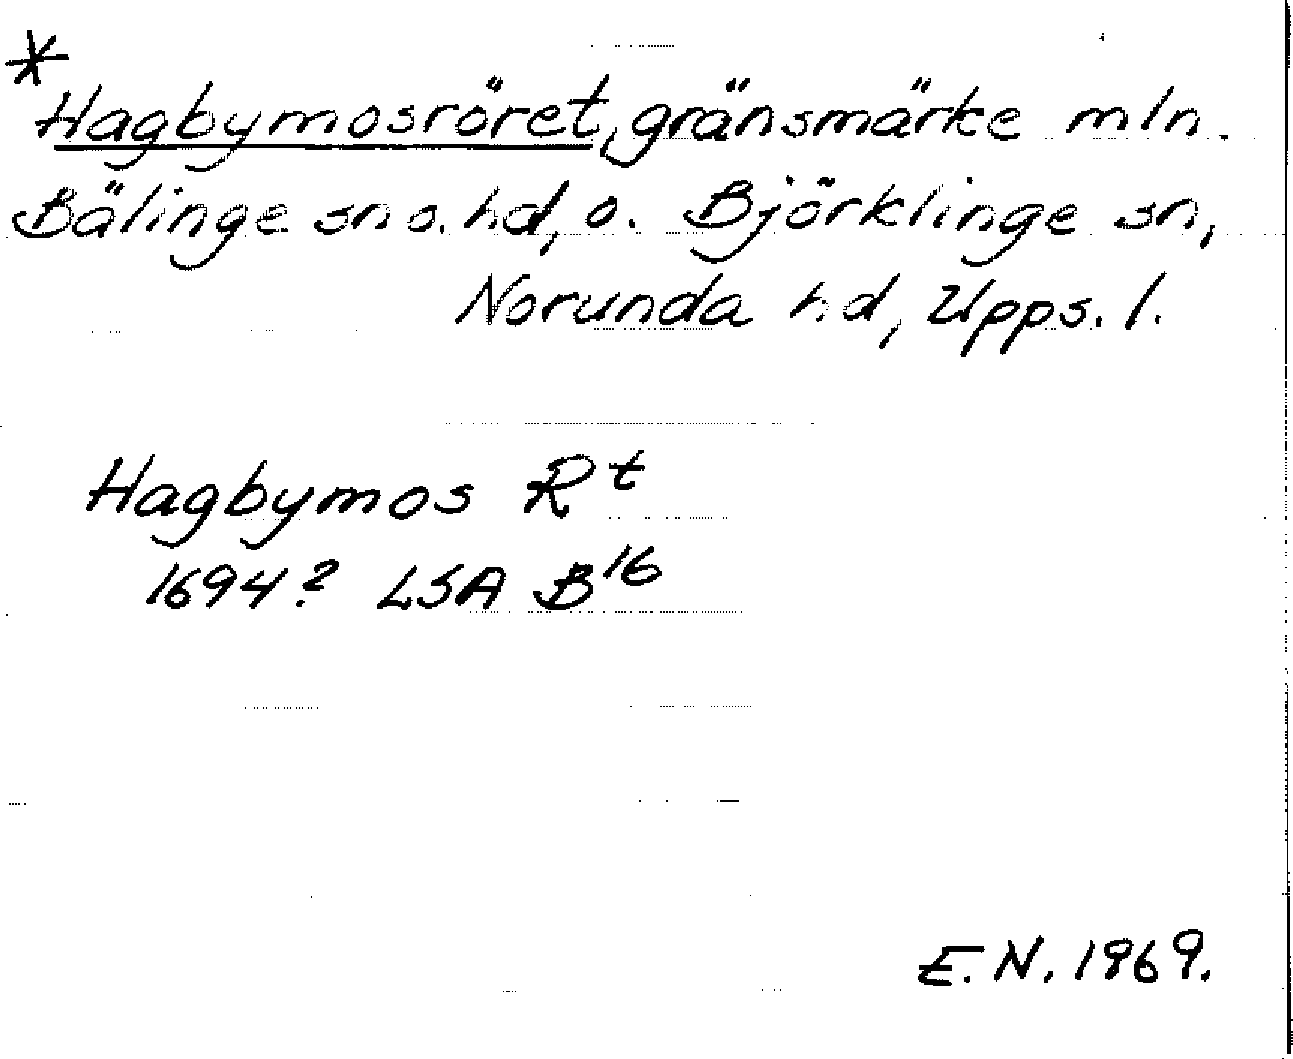 *
Hagbymosröret, gränsmärke mln.
Bälinge sn o. hd, o. Björklinge sn,
Norunda hd, Upps. l.
Hagbymos Rt
1694? LSA B16
E.N. 1969.